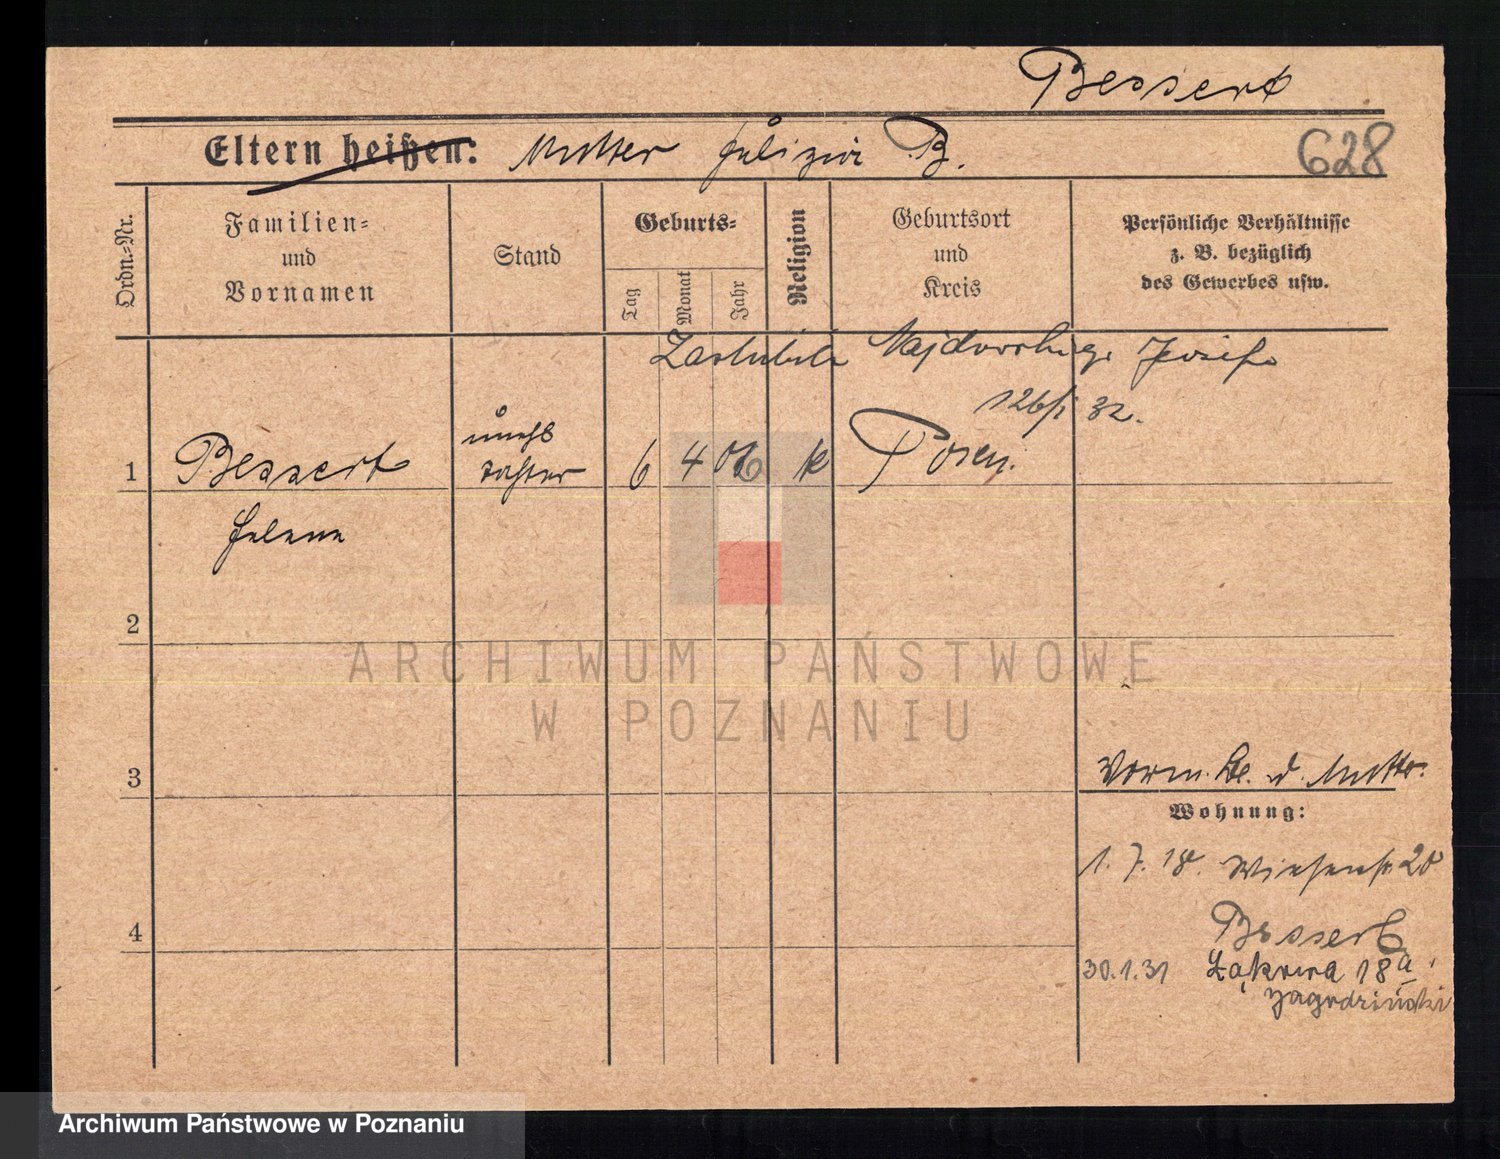 Bessert
Eltern heißen: Mutter Felizia B.
628
Ordn.=Nr.
Familien=
und
Vornamen
Stand
Geburts=
Tag
Monat
Jahr
Religion
Geburtsort
und
Kreis
Persönliche Verhältnisse
z. B. bezüglich
des Gewerbes usw.
Zaślubiła Józefa
32.
1 Bessert unehl 6 4 06 k Posen
Tochter
Helene
2
3
4
Vorm. d. Mutter
Wohnung:
1. 7. 18. Wiesenstr. 20
Bessert
30.1.31 Łąkowa 18a
Jagodziński
ARCHIWUM PAŃSTWOWE
W POZNANIU
Archiwum Państwowe w Poznaniu